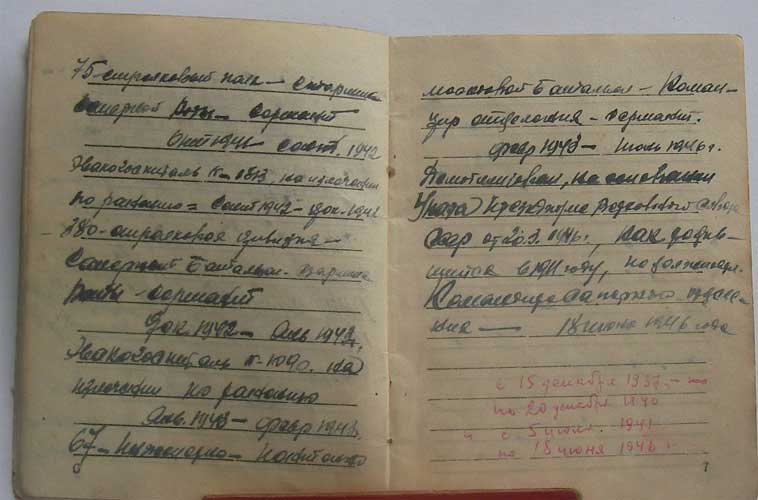 75-стрелковый полк – старшина
саперной Роты – сержант
Окт 1941 – Сент. 1942
Эвакогоспиталь № 1813, на излечении
по ранению = Сент 1942 – Дек. 1942
380-стрелковая дивизия –
Саперный Батальон
Роты – сержант
Дек. 1942 – Янв 1943.
Эвакогоспиталь № 1090. на
излечении по ранению
Янв. 1943 – февр 1943.
67 – Инженерно –
мостовой Батальон – Коман-
дир отделения – сержант.
февр 1943 – Июль 1946 г.
Демобилизован, на основании
Указа Президиума Верховного Совета
СССР от 20.3. 1946 г., как родив-
шийся в 1911 году, по должности
Командира саперного отделе-
ния — 18 июня 1946 года
с 15 декабря 1937. – по
по 20 декабря 1940
и с 5 июля. 1941
по 18 июня 1946 г.
7